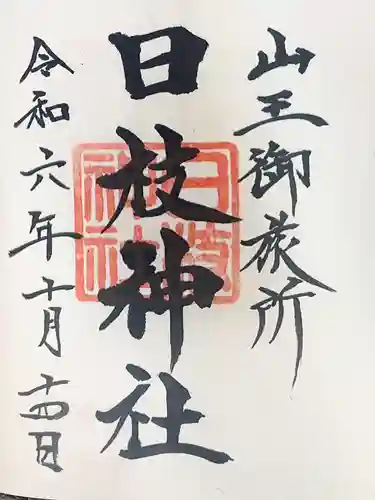 山王御旅所
日枝神社
令和六年十月十四日
日枝
神社